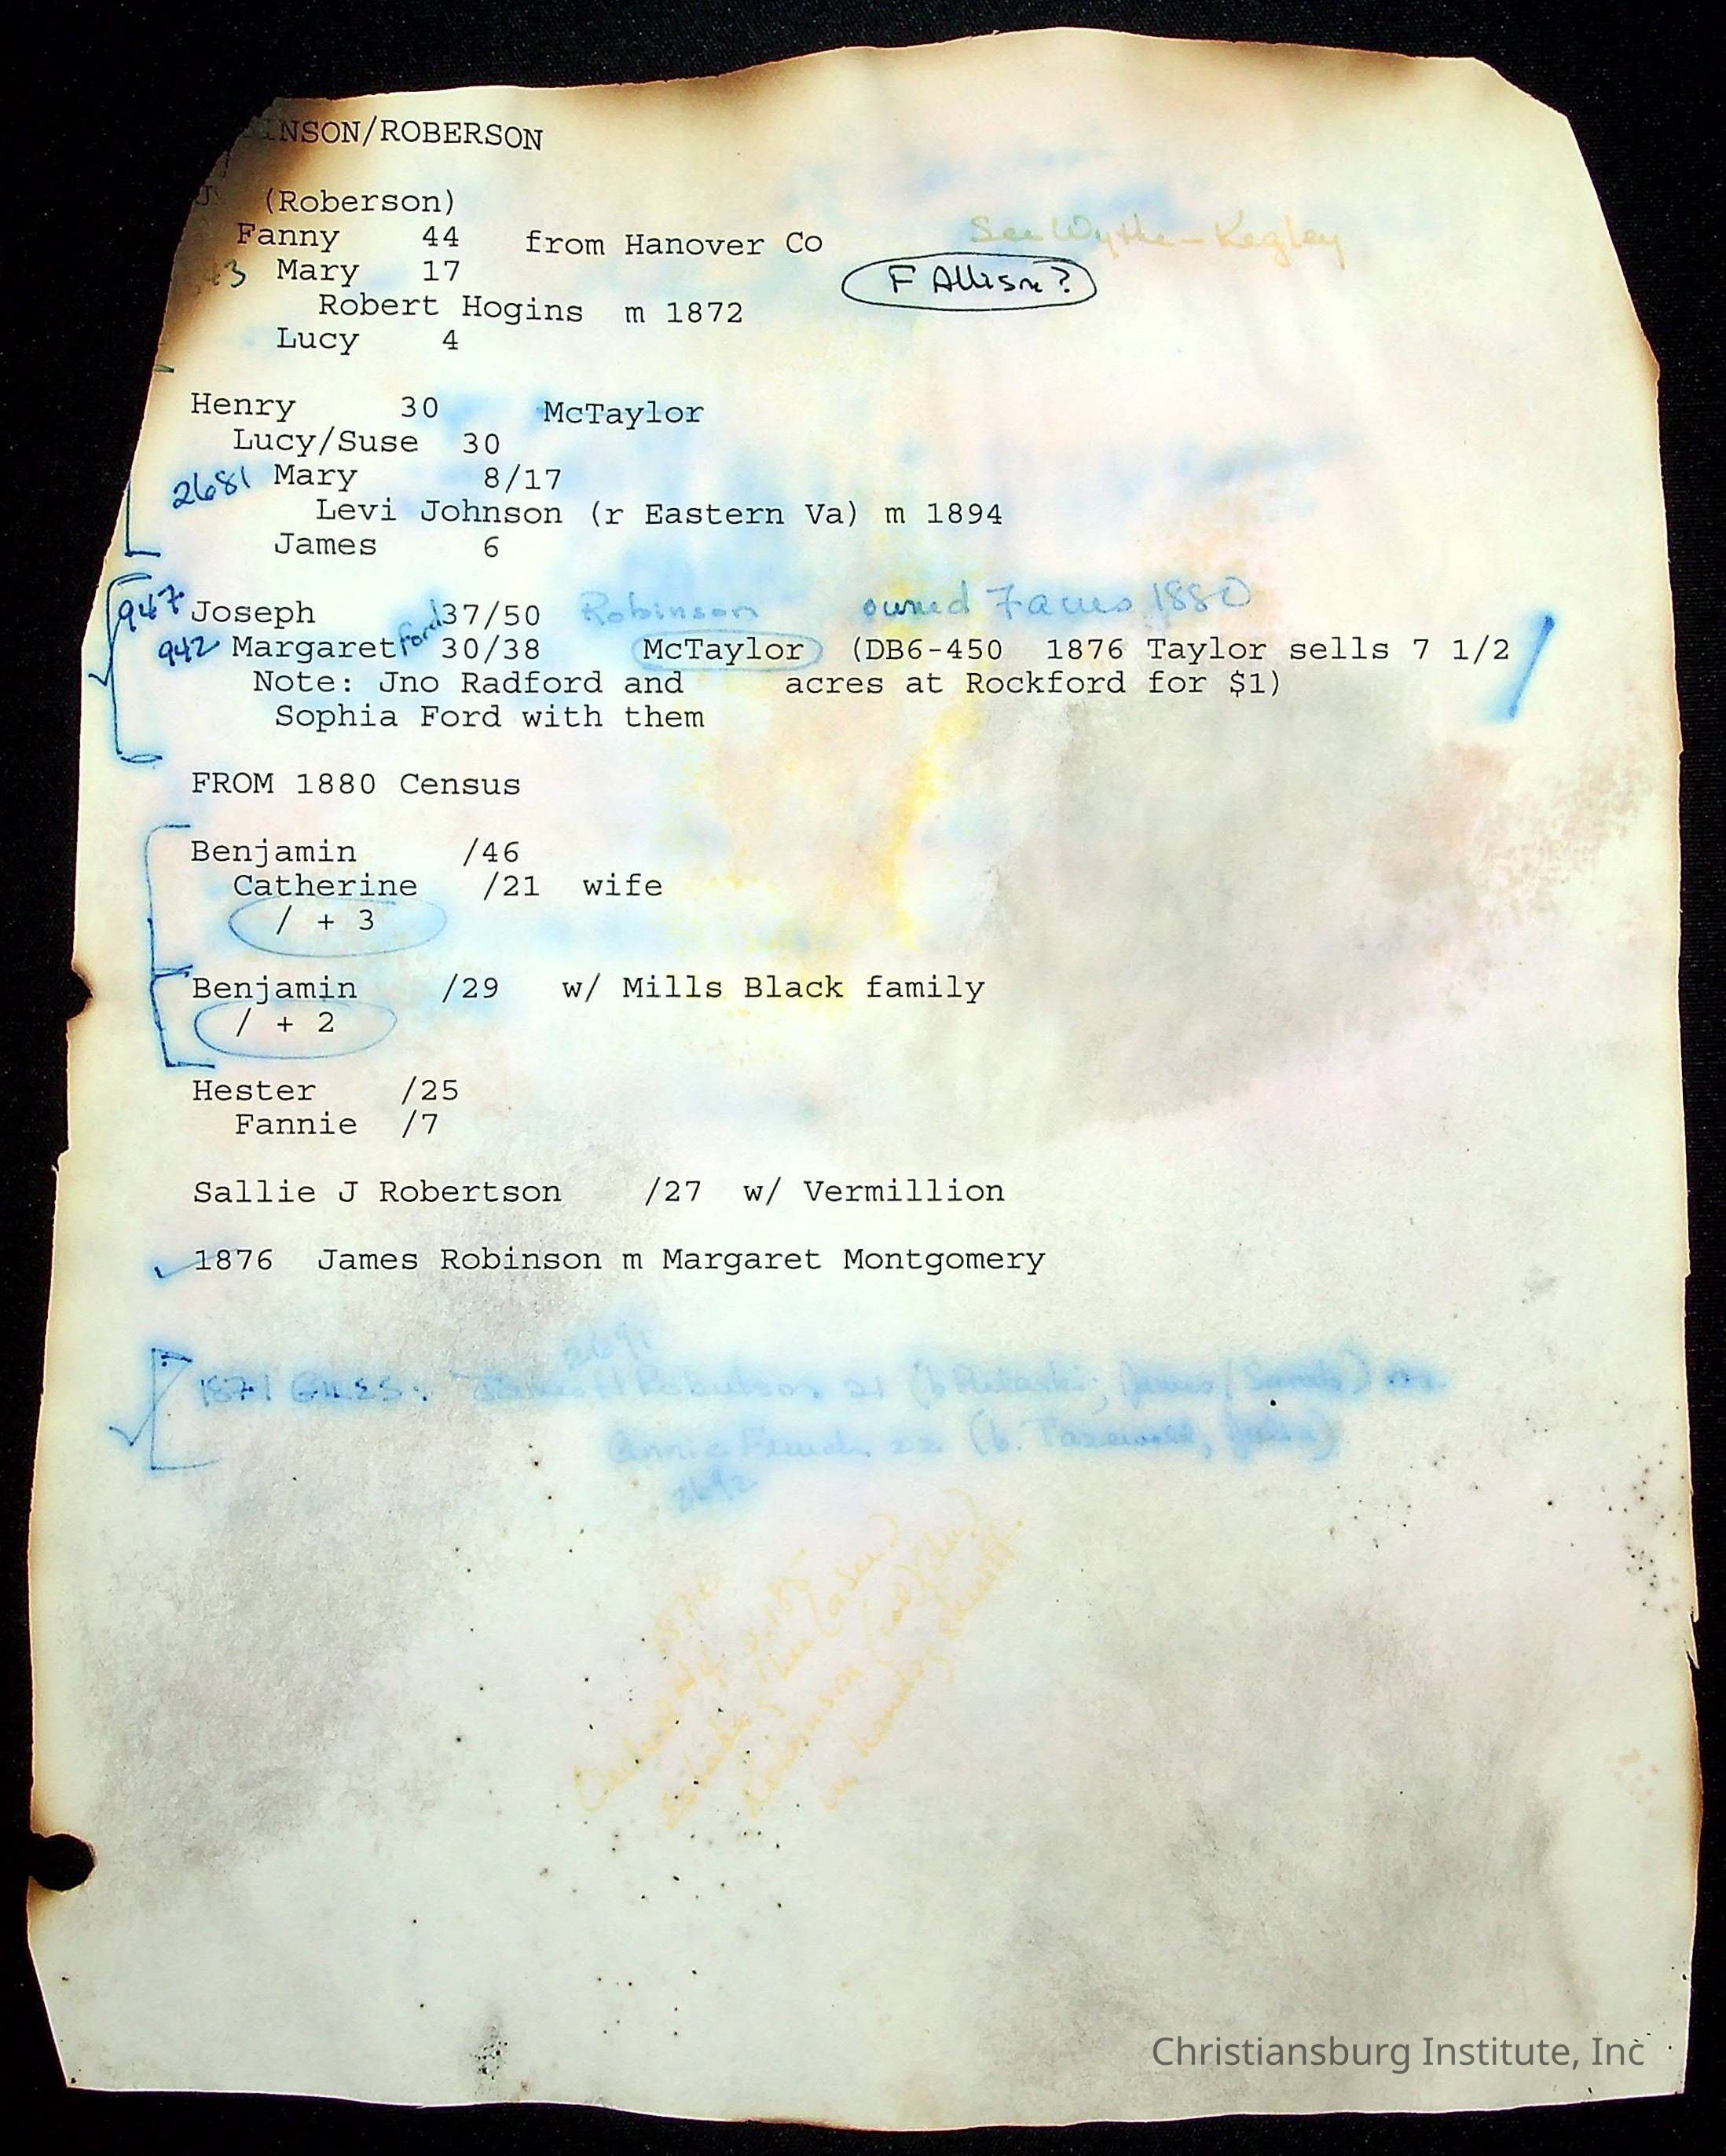 INSON/ROBERSON
J (Roberson)
Fanny 44 from Hanover Co See Wythe - Kegley
43 Mary 17 F Allison?
Robert Hogins m 1872
Lucy 4
Henry 30 McTaylor
Lucy/Suse 30
2681 Mary 8/17
Levi Johnson (r Eastern Va) m 1894
James 6
947 Joseph 37/50 Robinson owned 1880
942 Margaret Ford 30/38 McTaylor (DB6-450 1876 Taylor sells 7 1/2
Note: Jno Radford and acres at Rockford for $1)
Sophia Ford with them
FROM 1880 Census
Benjamin /46
Catherine /21 wife
/ + 3
Benjamin /29 w/ Mills Black family
/ + 2
Hester /25
Fannie /7
Sallie J Robertson /27 w/ Vermillion
1876 James Robinson m Margaret Montgomery
2691
1871 GILES: Robertson 21 (b Pulaski; James/Sarah) m.
Annie 22 (b. Tazewell, Julia)
2692
Robinson (col)
in hands of Sheriff.
Christiansburg Institute, Inc